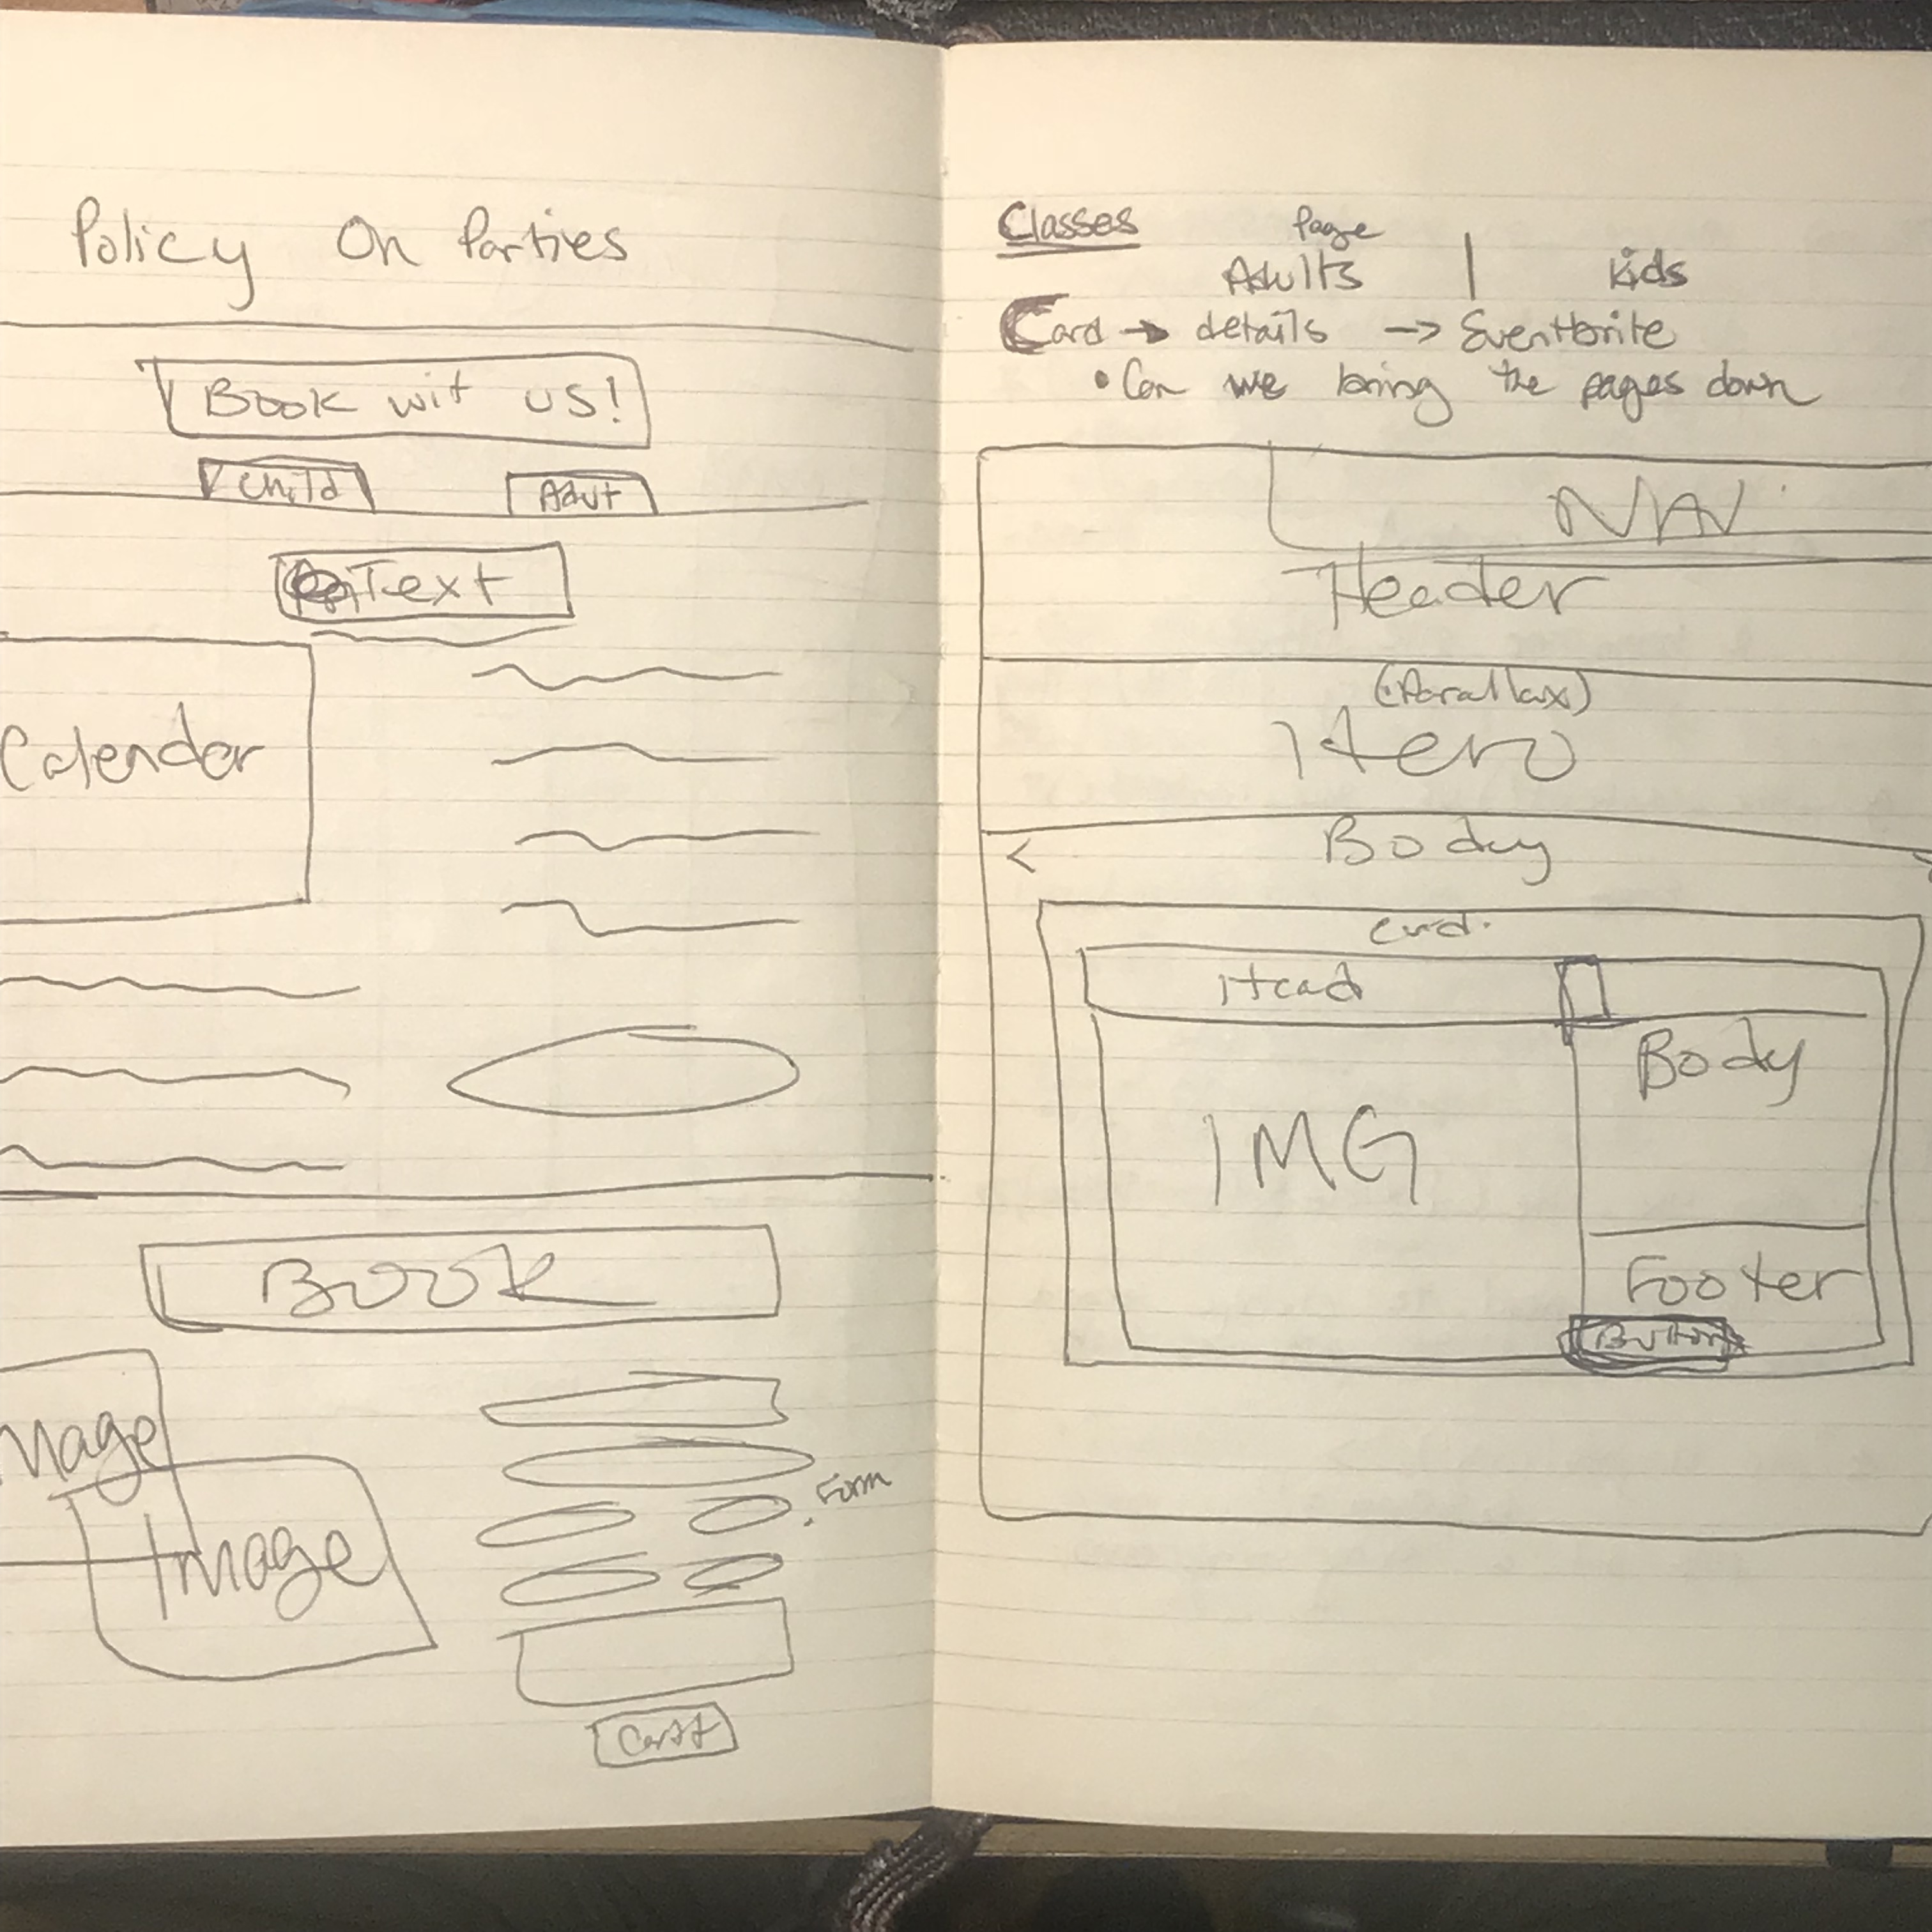 Policy On Parties
Book wit us!
Child Adut
Text
Calender
Book
Image
Form
Classes Page
Adults | Kids
Card → details → Eventbrite
• Can we bring the pages down
NAV
Header
(Parallax)
Hero
< Body
Head
Body
IMG
Footer
Button